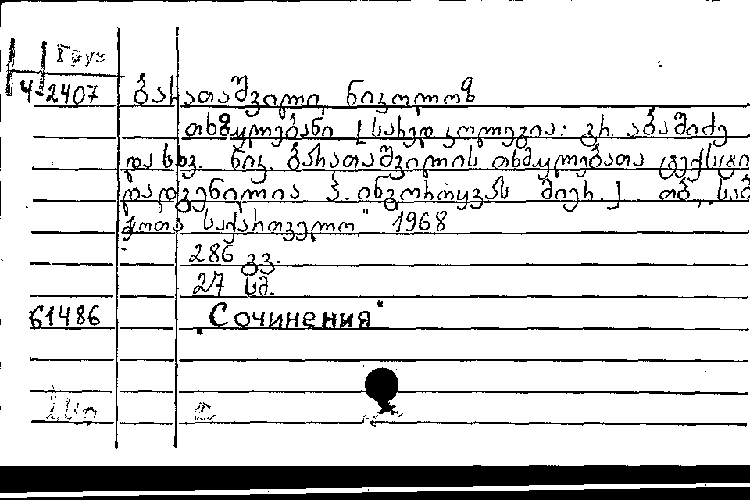 Груз
4-2407 ბარათაშვილი ნიკოლოზ
თხზულებანი [სარედ. კოლეგია: გრ. აბაშიძე
და სხვ. ნიკ. ბარათაშვილის თხზულებათა ტექსტი
დადგენილია პ. ინგოროყვას მიერ.] თბ., „საბ
ჭოთა საქართველო" 1968
286 გვ.
27 სმ.
61486 „Сочинения"